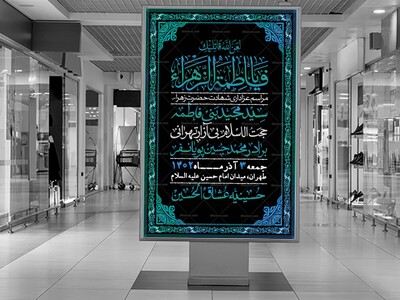 لعن الله قاتليك
يا فاطمة الزهراء
مراسم عزاداری شهادت حضرت زهرا
سید مجید بنی فاطمه
حجت الاسلام
برادر محمدحسین پویانفر
جمعه ۳ آذر ماه ۱۴۰۲
طهران، میدان امام حسین علیه السلام
حسینیه عشاق الحسین